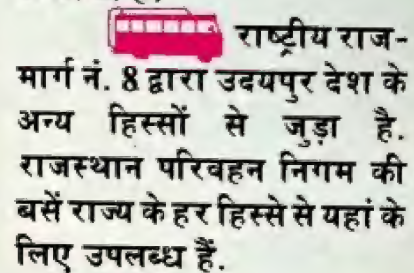 राष्ट्रीय राज-
मार्ग नं. 8 द्वारा उदयपुर देश के
अन्य हिस्सों से जुड़ा है.
राजस्थान परिवहन निगम की
बसें राज्य के हर हिस्से से यहां के
लिए उपलब्ध हैं.